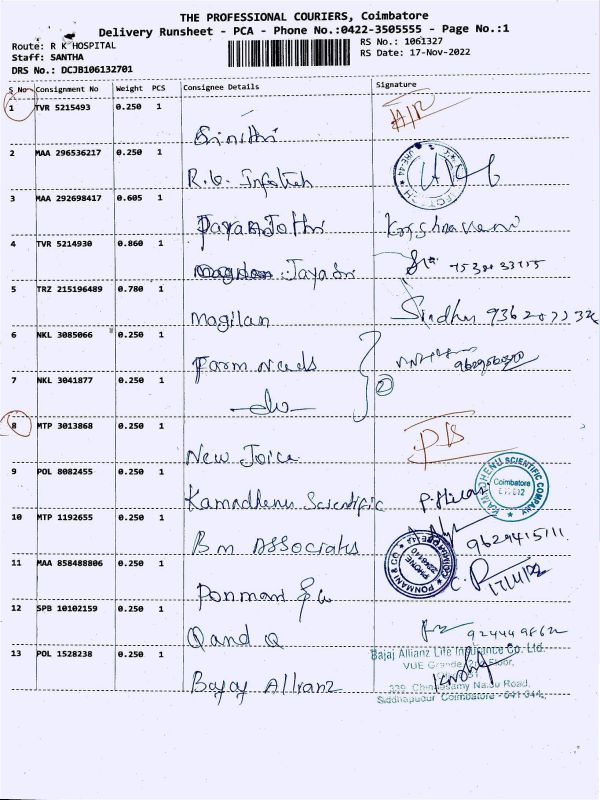 THE PROFESSIONAL COURIERS, Coimbatore
Delivery Runsheet - PCA - Phone No.:0422-3505555 - Page No.:1
Route: R K HOSPITAL
RS No.: 1061327
Staff: SANTHA
RS Date: 17-Nov-2022
DRS No.: DCJB106132701
S No Consignment No Weight PCS Consignee Details Signature
1 TVR 5215493 0.250 1
2 MAA 296536217 0.250 1 R.G. Infotech
3 MAA 292698417 0.605 1
4 TVR 5214930 0.860 1 Jayasri
5 TRZ 215196489 0.780 1 Magilan Sindhu
6 NKL 3085066 0.250 1 Farm Needs
7 NKL 3041877 0.250 1 -do- 2
8 MTP 3013868 0.250 1 New Joice
9 POL 8082455 0.250 1 Kamadhenu Scientific KAMADHENU SCIENTIFIC COMPANY Coimbatore
10 MTP 1192655 0.250 1 B.M Associates 9629415111
11 MAA 858488806 0.250 1 Ponmani & Co PONMANI & CO PHONE COIMBATORE 17/11/22
12 SPB 10102159 0.250 1 Q and Q
13 POL 1528238 0.250 1 Bajaj Allianz
Bajaj Allianz Life Insurance Co. Ltd.
VUE Grande, 2nd Floor,
339, Chinnasamy Naidu Road,
Siddhapudur Coimbatore - 641 044.